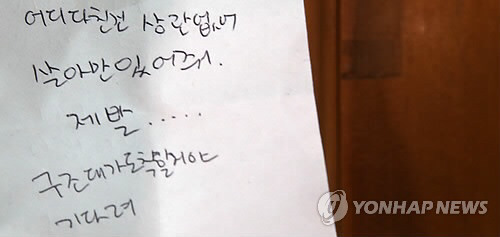 어디다친건 상관없어
살아만있어줘.
제발.....
구조대가도착할거야
기다려
YONHAP NEWS